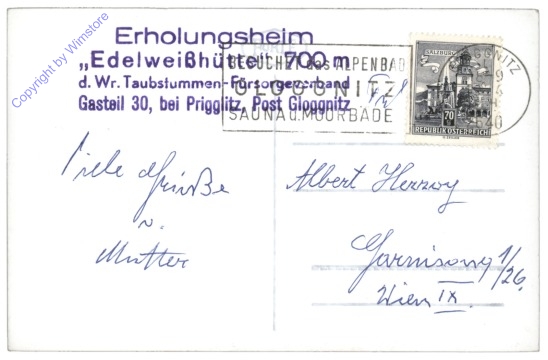 Copyright by Wimstore
Erholungsheim
„Edelweißhütte" 700 m
d. Wr. Taubstummen-Fürsorgeverband
Gasteil 30, bei Prigglitz, Post Gloggnitz
BESUCHET das ALPENBAD
GLOGGNITZ
SAUNA u. MOORBÄDE
SALZBURG
S
70
REPUBLIK ÖSTERREICH
GLOGGNITZ
Viele Grüße
u.
Mutter
Albert Herzog
Garnisong 1/26.
Wien IX.